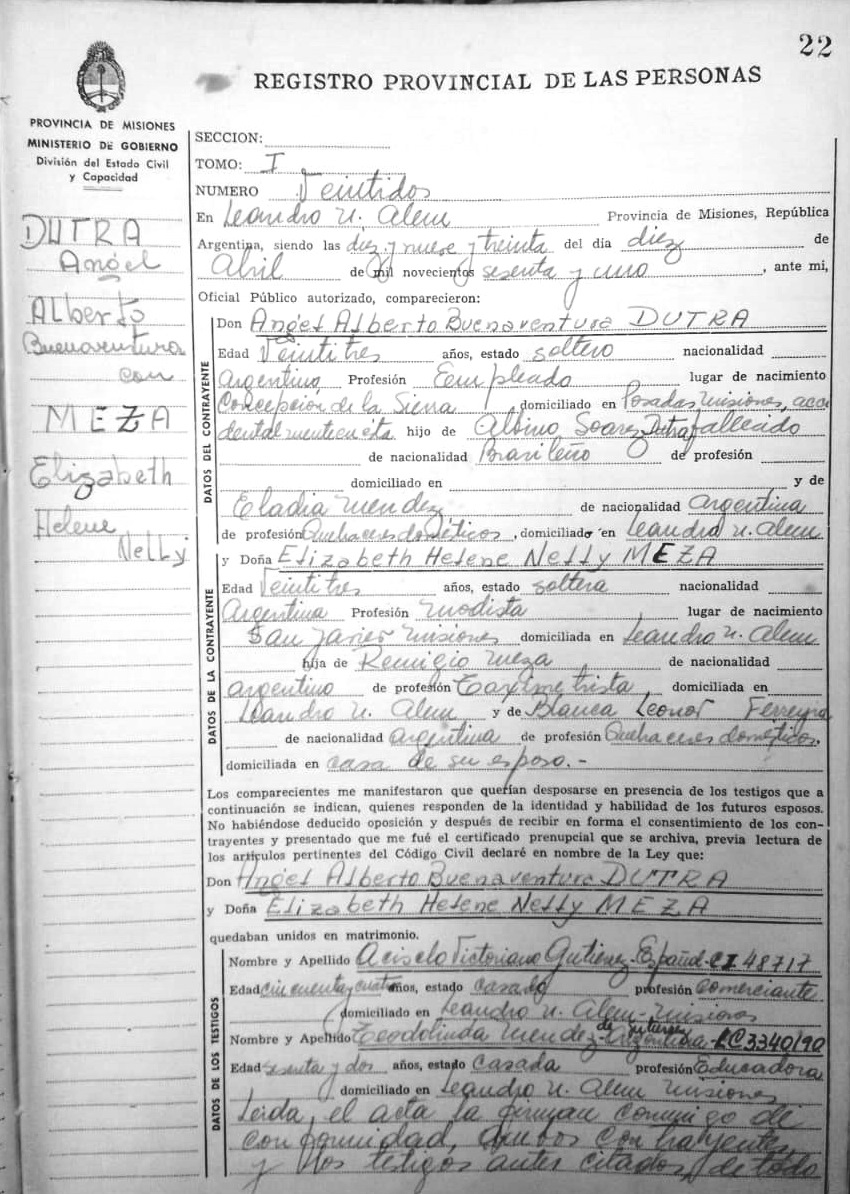 22
REGISTRO PROVINCIAL DE LAS PERSONAS
PROVINCIA DE MISIONES
MINISTERIO DE GOBIERNO
División del Estado Civil
y Capacidad
DUTRA
Angel
Alberto
Buenaventura
con
MEZA
Elizabeth
Helene
Nelly
SECCION:
TOMO: I
NUMERO Veintidos
En Leandro N. Alem Provincia de Misiones, República
Argentina, siendo las diez y nueve y treinta del día diez de
Abril de mil novecientos sesenta y uno, ante mi,
Oficial Público autorizado, comparecieron:
DATOS DEL CONTRAYENTE
Don Angel Alberto Buenaventura DUTRA
Edad Veintitres años, estado soltero nacionalidad
Argentino Profesión Empleado lugar de nacimiento
Concepción de la Sierra domiciliado en Posadas Misiones, acci
dentalmente en ésta hijo de Albino Soarez Dutra fallecido
de nacionalidad Brasileño de profesión
domiciliado en y de
Eladia Mendez de nacionalidad Argentina
de profesión Quehaceres domésticos, domiciliado en Leandro N. Alem
DATOS DE LA CONTRAYENTE
y Doña Elizabeth Helene Nelly MEZA
Edad Veintitres años, estado soltera nacionalidad
Argentina Profesión Modista lugar de nacimiento
San Javier Misiones domiciliada en Leandro N. Alem
hija de Remigio Meza de nacionalidad
argentino de profesión Taximetrista, domiciliada en
Leandro N. Alem y de Blanca Leonor Ferreyra
de nacionalidad Argentina de profesión Quehaceres domésticos,
domiciliada en casa de su esposo.-
Los comparecientes me manifestaron que querían desposarse en presencia de los testigos que a
continuación se indican, quienes responden de la identidad y habilidad de los futuros esposos.
No habiéndose deducido oposición y después de recibir en forma el consentimiento de los con-
trayentes y presentado que me fué el certificado prenupcial que se archiva, previa lectura de
los artículos pertinentes del Código Civil declaré en nombre de la Ley que:
Don Angel Alberto Buenaventura DUTRA
y Doña Elizabeth Helene Nelly MEZA
quedaban unidos en matrimonio.
DATOS DE LOS TESTIGOS
Nombre y Apellido Acisclo Victoriano Gutierrez-Español-CI 48717
Edad cincuenta y cuatro años, estado casado profesión Comerciante
domiciliado en Leandro N. Alem-Misiones
Nombre y Apellido Teodolinda Mendez de Gutierrez-Argentina-LC 3340190
Edad sesenta y dos años, estado casada profesión Educadora
domiciliado en Leandro N. Alem Misiones
Leida el acta la firman conmigo de
conformidad, ambos contrayentes,
y los testigos antes citados, de todo